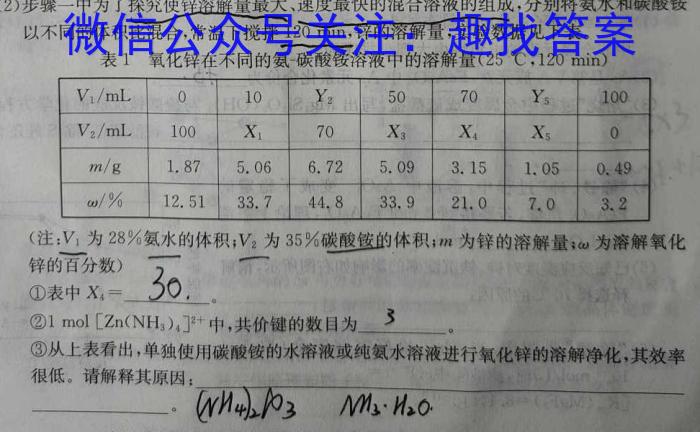 (2)步骤一中为了探究使锌溶解量最大、速度最快的混合溶液的组成,分别将氨水和碳酸铵
以不同的体积比混合,常温下搅拌120 min,锌的溶解量
微信公众号关注:趣找答案
表1 氧化锌在不同的氨-碳酸铵溶液中的溶解量(25 ℃,120 min)
V₁/mL 0 10 Y₂ 50 70 Y₅ 100
V₂/mL 100 X₁ 70 X₃ X₄ X₅ 0
m/g 1.87 5.06 6.72 5.09 3.15 1.05 0.49
ω/% 12.51 33.7 44.8 33.9 21.0 7.0 3.2
(注:V₁ 为 28%氨水的体积;V₂ 为 35%碳酸铵的体积;m 为锌的溶解量;ω 为溶解氧化
锌的百分数)
①表中 X₄= 30. 。
②1 mol [Zn(NH₃)₄]²⁺ 中,共价键的数目为 3 。
③从上表看出,单独使用碳酸铵的水溶液或纯氨水溶液进行氧化锌的溶解净化,其效率
很低。请解释其原因:
。 (NH4)2 O3 NH3·H2O.